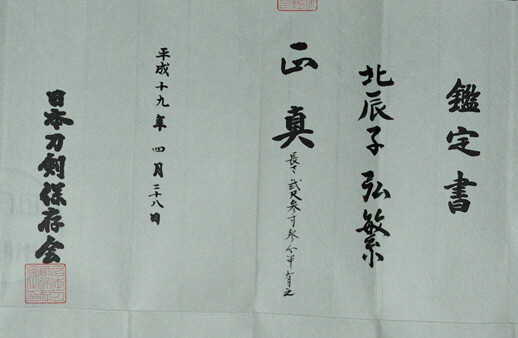 鑑定書
北辰子弘繁
正真
長さ弐尺参寸参分半有之
平成十九年四月二十八日
日本刀剣保存会